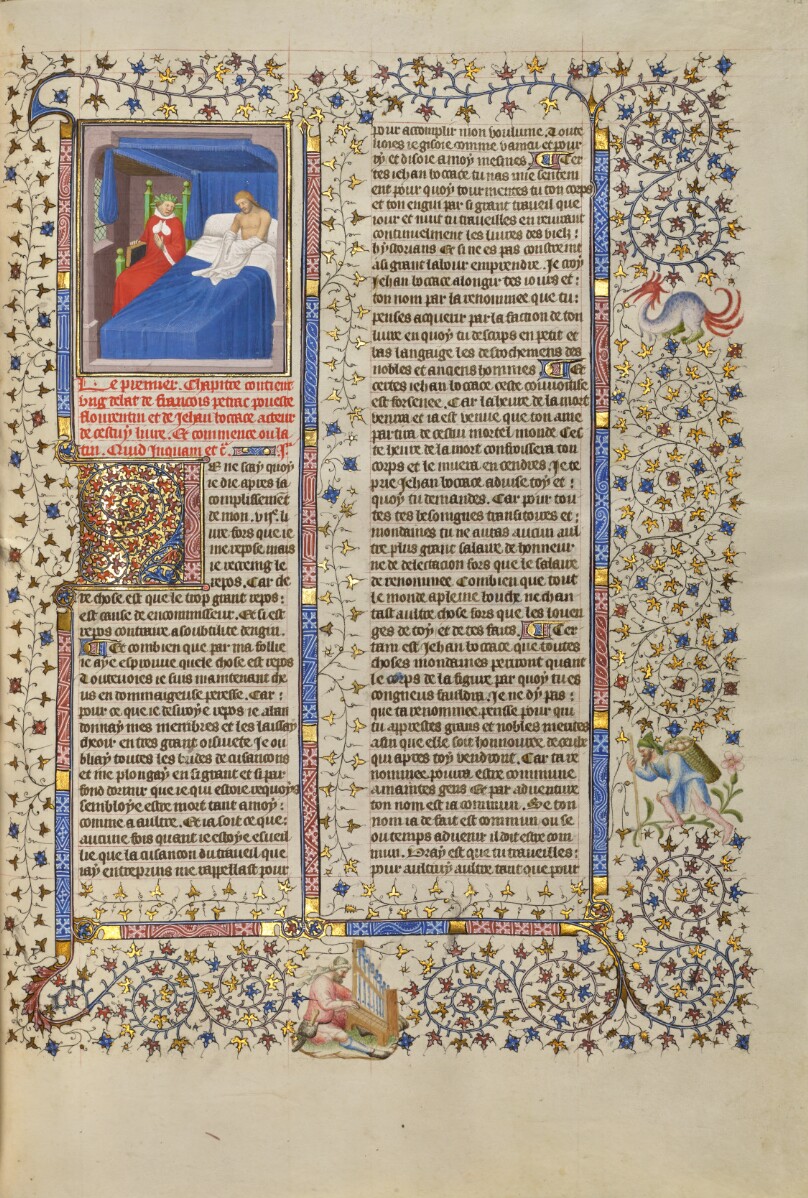 Le premier. Chapitre contient
ung debat de francois petrac pouesse
flourentin et de Jehan boccace acteur
de cestuy livre. Et commence ou la
tin. Quid Inquam et c̃. Je
E ne scay quoy
ie die apres la
complissemẽt
de mon .viij. li
vre fors que ie
me repose mais
ie restreing le
repos. Car cle
re chose est que le trop grant repos:
est cause de encommisseur. Et si est
repos contraire a soubtilite dengin.
Et combien que par ma follie
ie aye esprouve quele chose est repos
Toutevoies ie suis maintenant che
us en dommaigeuse peresse. Car:
pour ce que ie desvoye repos ie aban
donnay mes membres et les laissay
cheoir en tres grant oisivete. Je ou
bliay toutes les cures de cusancons
et me plongay en si grant et si par
fond dormir que ie qui estoie requoys
sembloye estre mort tant a moy:
comme a aultre. Et ia soit ce que:
aucune fois quant ie estoye esveil
lie que la cusancon du traveil que
iay entreprins me rappellast pour
pour accomplir mon voulume. Toute
voies ie gisoie comme vaincu et pour
cy et disoie a moy mesmes. Cer
tes iehan boccace tu nas une sentem
ent pour quoy tourmentes tu ton corps
et ton engin par si grant traveil que
iour et nuit tu traveilles en revirant
continuelment les livres des vielz:
hystorians Et si ne es pas constreint
a si grant labour emprendre. Je croy
Jehan boccace alongir tes iours et:
ton nom par la renommee que tu:
penses acquerir par la faction de ton
livre en quoy tu descrips en petit et
bas langaige les destrochemens des
nobles et anciens hommes Et
certes iehan boccace ceste convoitise
est forsenee. Car la heure de la mort
venra et ia est venue que ton ame
partira de cestui mortel monde Ces
te heure de la mort confroissera ton
corps et le muera en cendres. Je te
prie Jehan boccace advise toy et:
quoy tu demandes. Car pour tou
tes tes besoingnes transitoires et:
mondaines tu ne auras aucun aul
tre plus grant salaire de honneur
ne de delectacion fors que le salaire
de renommee Combien que tout
le monde a pleine bouche ne chan
tast aultre chose fors que les louen
ges de toy et de tes fais. Cer
tain est Jehan boccace que toutes
choses mondaines periront quant
le corps de la figure par quoy tu es
congneus fauldra. Je ne dy pas:
que ta renommee pensse pour qui
tu apprestes grans et nobles merites
afin que elle soit honnouree de ceulx
qui apres toy vendront. Car ta re
nommee pourra estre commune
a maintes gens Et par adventure
ton nom est ia commun. Se ton
nom ia de fait est commun ou se
ou temps advenir il doit estre com
mun. Vray est que tu traveilles:
pour aulcuy aultre tant que pour